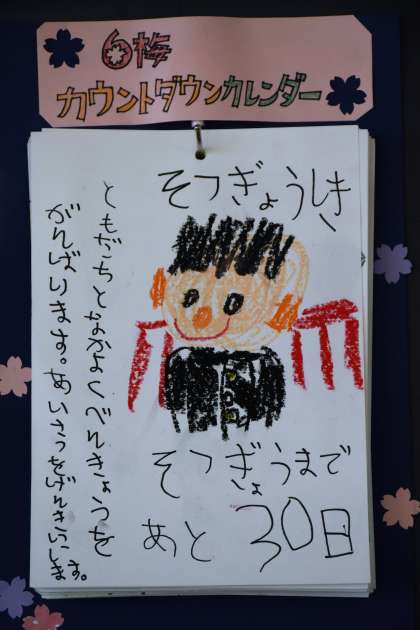 6梅
カウントダウンカレンダー
そつぎょうしき
ともだちとなかよくべんきょうを
がんばります。あいさつをげんきにします。
そつぎょうまで
あと30日